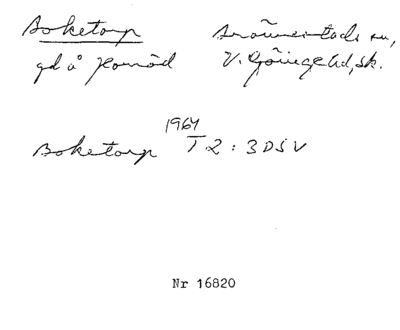 Boketorp Brönnestads sn,
gd å Hornöd V. Göinge hd, sk.
1967
Boketorp T.2 : 3 DSV
Nr 16820